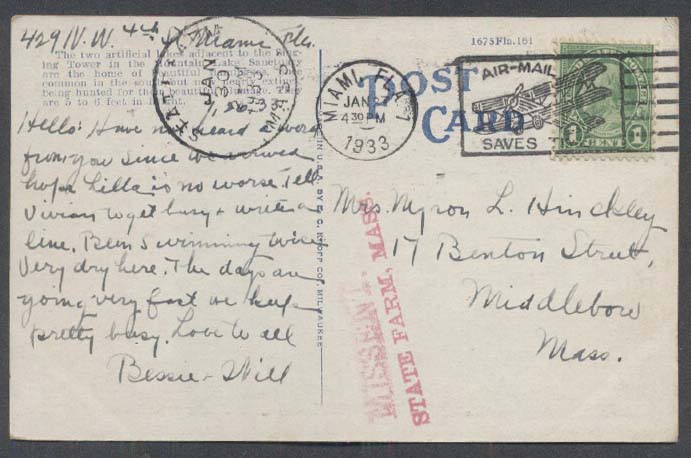 429 N.W. 4th St Miami Fla.
The two artificial lakes adjacent to the Sing-
ing Tower in the Mountain Lake Sanctuary
are the home of beautiful
common in the south but nearly extinct
being hunted for their beautiful They
are 5 to 6 feet in height.
Hello: Have not heard a word
from you since we arrived
hope Lilla is no worse. Tell
Vivian to get busy & write a
line. Been swimming twice
Very dry here. The days are
going very fast we keep
pretty busy. Love to all
Bessie & Will
STATE FARM
JAN
30
1933
MASS.
MADE IN U.S.A. BY E. C. KROPP CO., MILWAUKEE
1675 Fln. 161
POST
CARD
MIAMI, FLA. 1
JAN 27
430 PM
1933
AIR-MAIL
SAVES
1 CENT 1
Mrs. Myron L. Hinckley
17 Benton Street,
Middleboro
Mass.
MISSENT
STATE FARM, MASS.